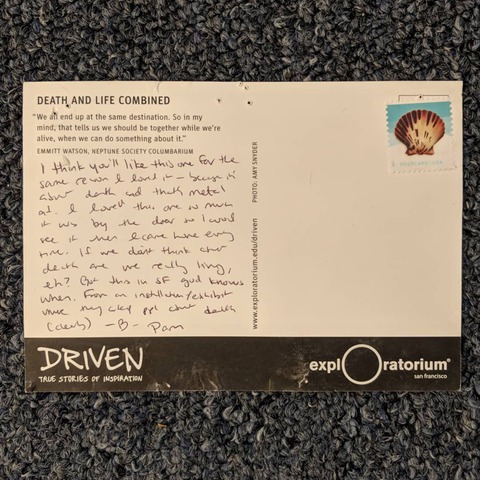 DEATH AND LIFE COMBINED
"We all end up at the same destination. So in my
mind, that tells us we should be together while we're
alive, when we can do something about it."
EMMITT WATSON, NEPTUNE SOCIETY COLUMBARIUM
I think you'll like this one for the
same reason I loved it – because it's
about death and that's metal
af. I loved this one so much
it was by the door so I would
see it when I came home every
time. If we don't think about
death are we really living,
eh? Got this in SF god knows
when. From an installation/exhibit
where they ppl about death
(clearly) –B– Pam
PHOTO: AMY SNYDER
www.exploratorium.edu/driven
DRIVEN
TRUE STORIES OF INSPIRATION
explOratorium®
san francisco